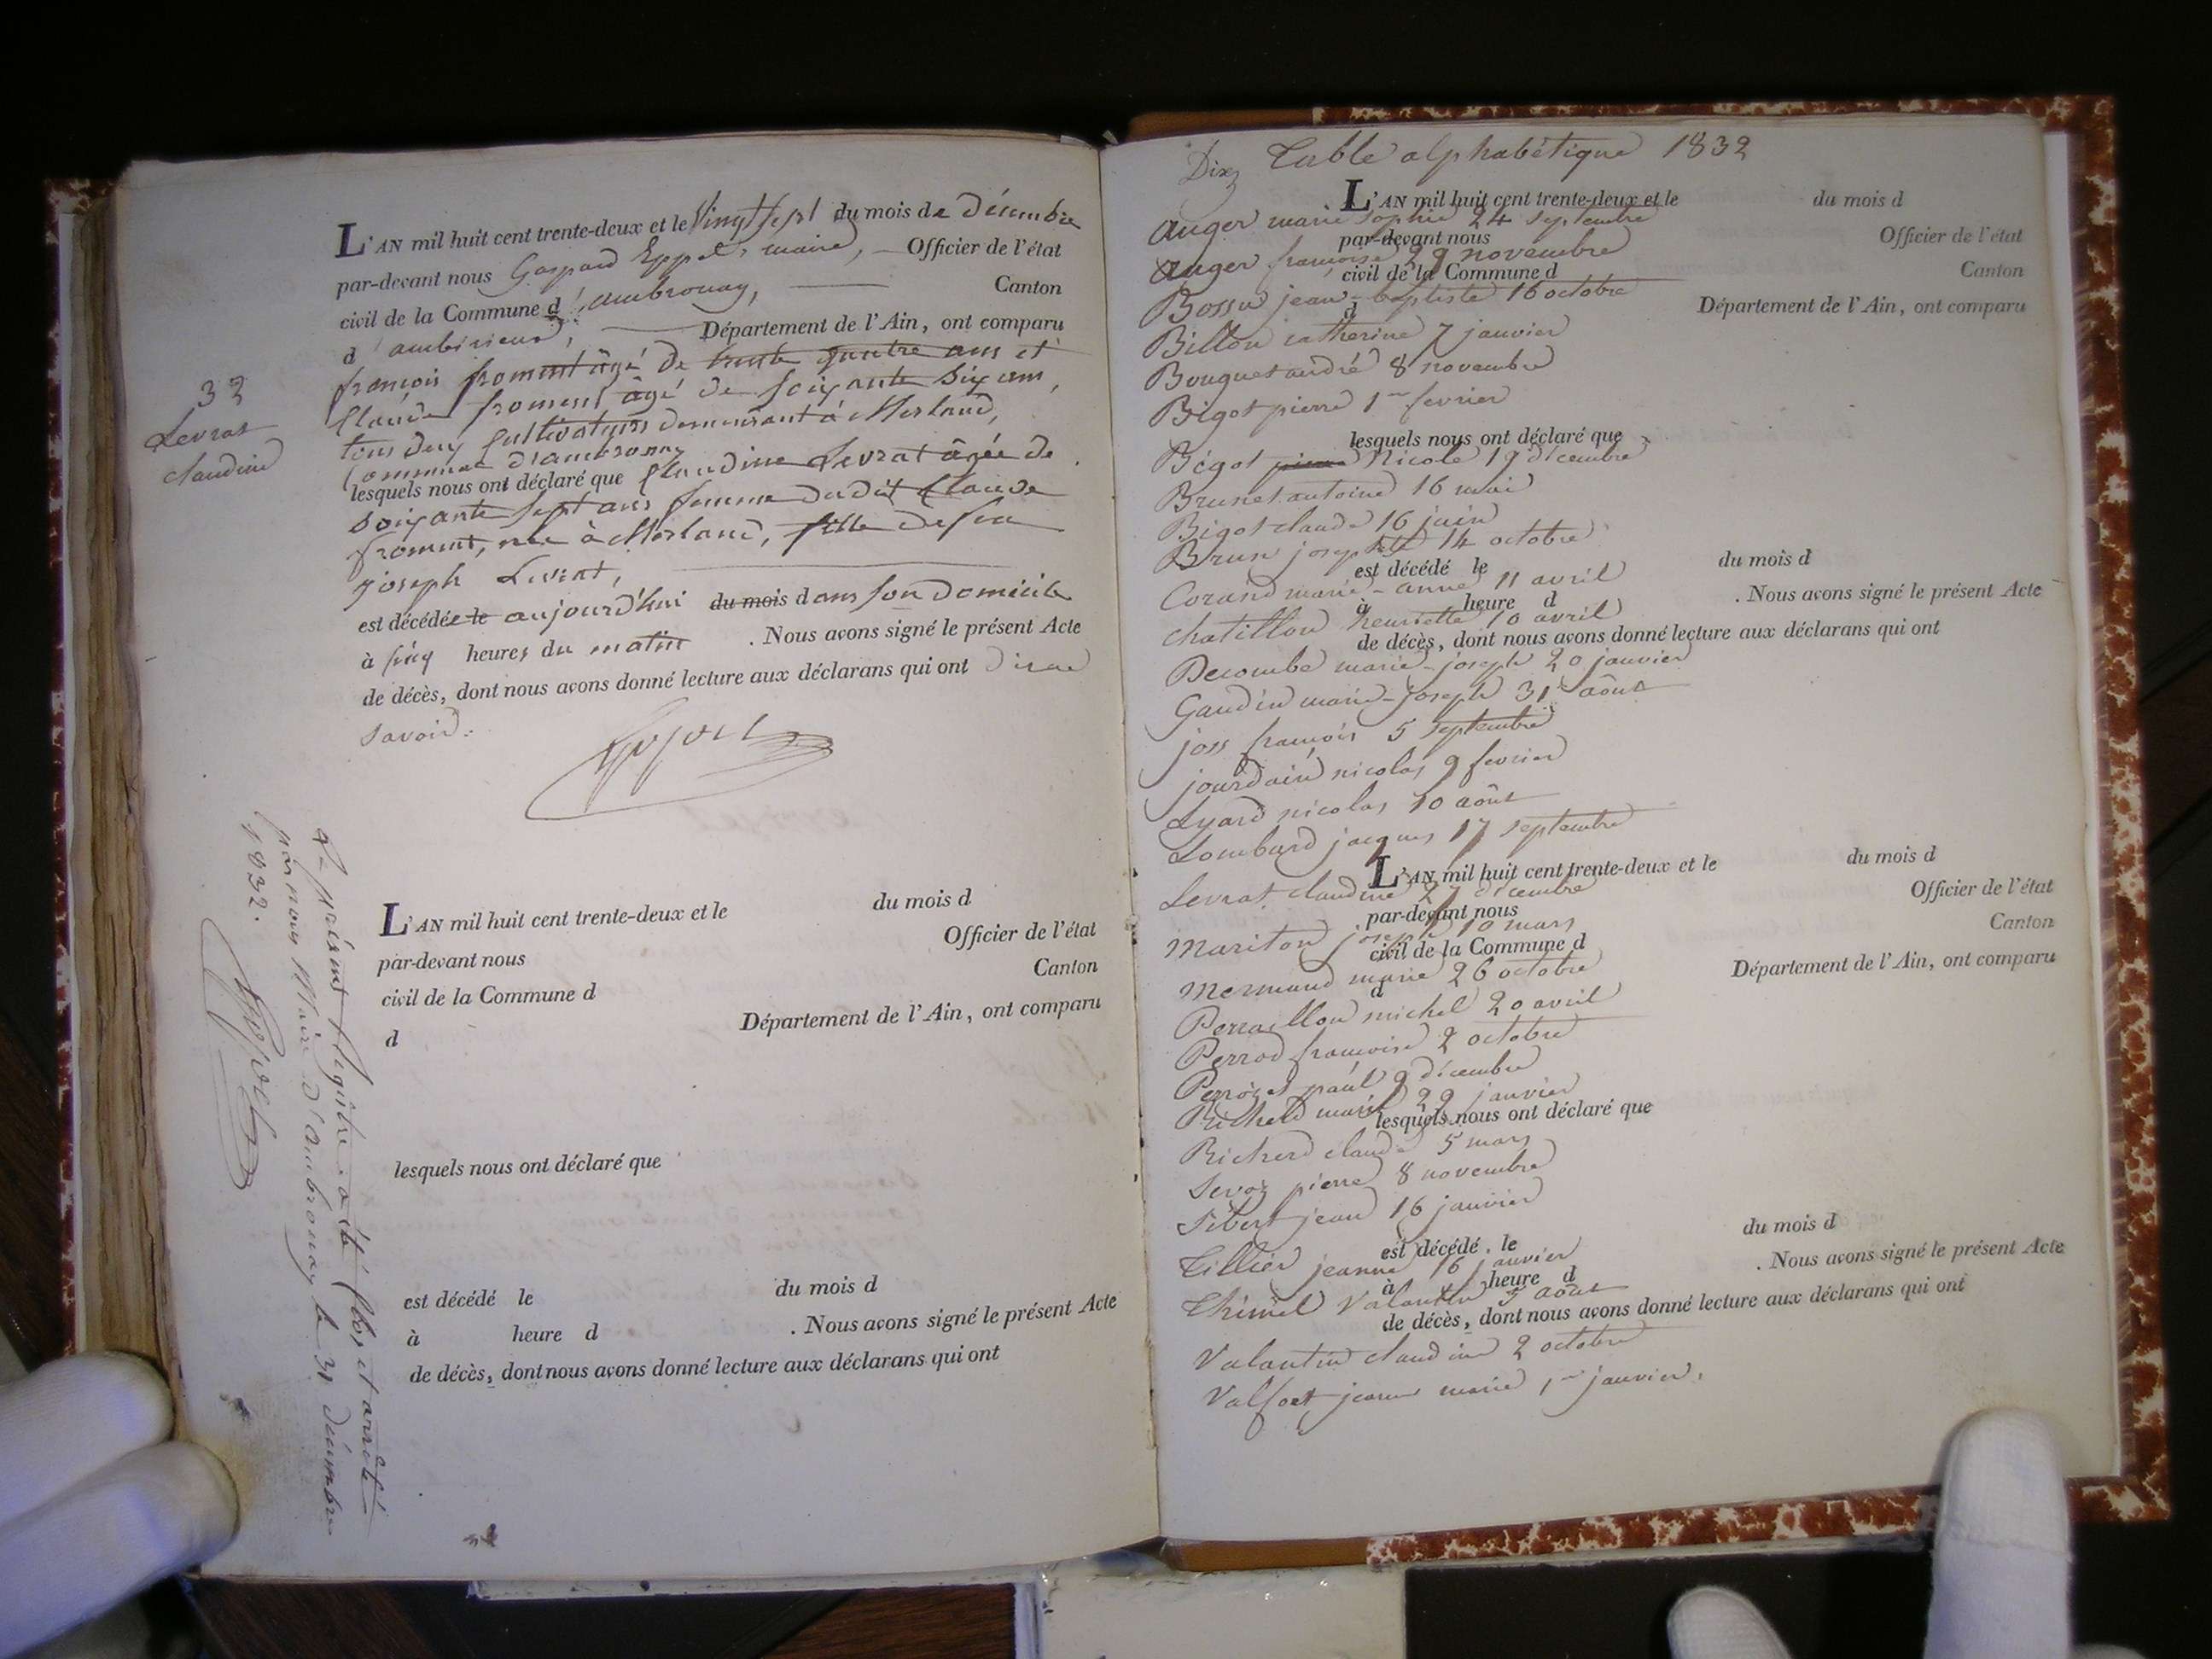 L'AN mil huit cent trente-deux et le Vingt sept du mois de décembre
par-devant nous Gaspard maire, Officier de l'état
civil de la Commune d'ambronay, Canton
d'ambérieux, Département de l'Ain, ont comparu
françois froment âgé de trente quatre ans et
Claude froment âgé de soixante six ans,
tous deux Cultivateurs demeurant à Merland,
Commune d'ambronay
lesquels nous ont déclaré que Claudine Levrat âgée de
soixante sept ans femme dudit Claude
froment, née à Merland, fille de feu
joseph Levrat,
est décédée le aujourd'hui du mois dans son domicile
à cinq heures du matin . Nous avons signé le présent Acte
de décès, dont nous avons donné lecture aux déclarans qui ont
savoir.
32
Levrat
claudine
L'AN mil huit cent trente-deux et le du mois d
par-devant nous Officier de l'état
civil de la Commune d Canton
d Département de l'Ain, ont comparu
lesquels nous ont déclaré que
est décédé le du mois d
à heure d . Nous avons signé le présent Acte
de décès, dont nous avons donné lecture aux déclarans qui ont
Le présent Registre a été clos et arrêté
par nous Maire d'ambronay le 31 décembre
1832.
Dix
Table alphabétique 1832
L'AN mil huit cent trente-deux et le du mois d
auger marie sophie 24 septembre
par-devant nous Officier de l'état
auger françoise 29 novembre
civil de la Commune d Canton
Bossu jean-baptiste 16 octobre
d Département de l'Ain, ont comparu
Billon catherine 7 janvier
Bouquet andré 8 novembre
Bigot pierre 1er fevrier
lesquels nous ont déclaré que
Bigot pierre Nicole 19 décembre
Brunet antoine 16 mai
Bigot claude 16 juin
Brun josephte 14 octobre
est décédé le du mois d
Corand marie-anne 11 avril
à heure d . Nous avons signé le présent Acte
chatillon henriette 10 avril
de décès, dont nous avons donné lecture aux déclarans qui ont
Decombe marie-joseph 20 janvier
Gaudin marie-joseph 31 août
joss françois 5 septembre
jourdain nicolas 9 fevrier
Lyard nicolas 10 août
Lombard jacques 17 septembre
L'AN mil huit cent trente-deux et le du mois d
Levrat claudine 27 décembre
par-devant nous Officier de l'état
Mariton joseph 10 mars
civil de la Commune d Canton
Mermand marie 26 octobre
d Département de l'Ain, ont comparu
Perraillon michel 20 avril
Perrod françoise 2 octobre
Perrozet paul 9 décembre
Richerd marie 29 janvier
lesquels nous ont déclaré que
Richerd claude 5 mars
Sevoz pierre 8 novembre
Sibert jean 16 janvier
est décédé le du mois d
Tillier jeanne 16 janvier
à heure d . Nous avons signé le présent Acte
Valantin 5 août
de décès, dont nous avons donné lecture aux déclarans qui ont
Valantin claudine 2 octobre
jeanne marie 1er janvier.